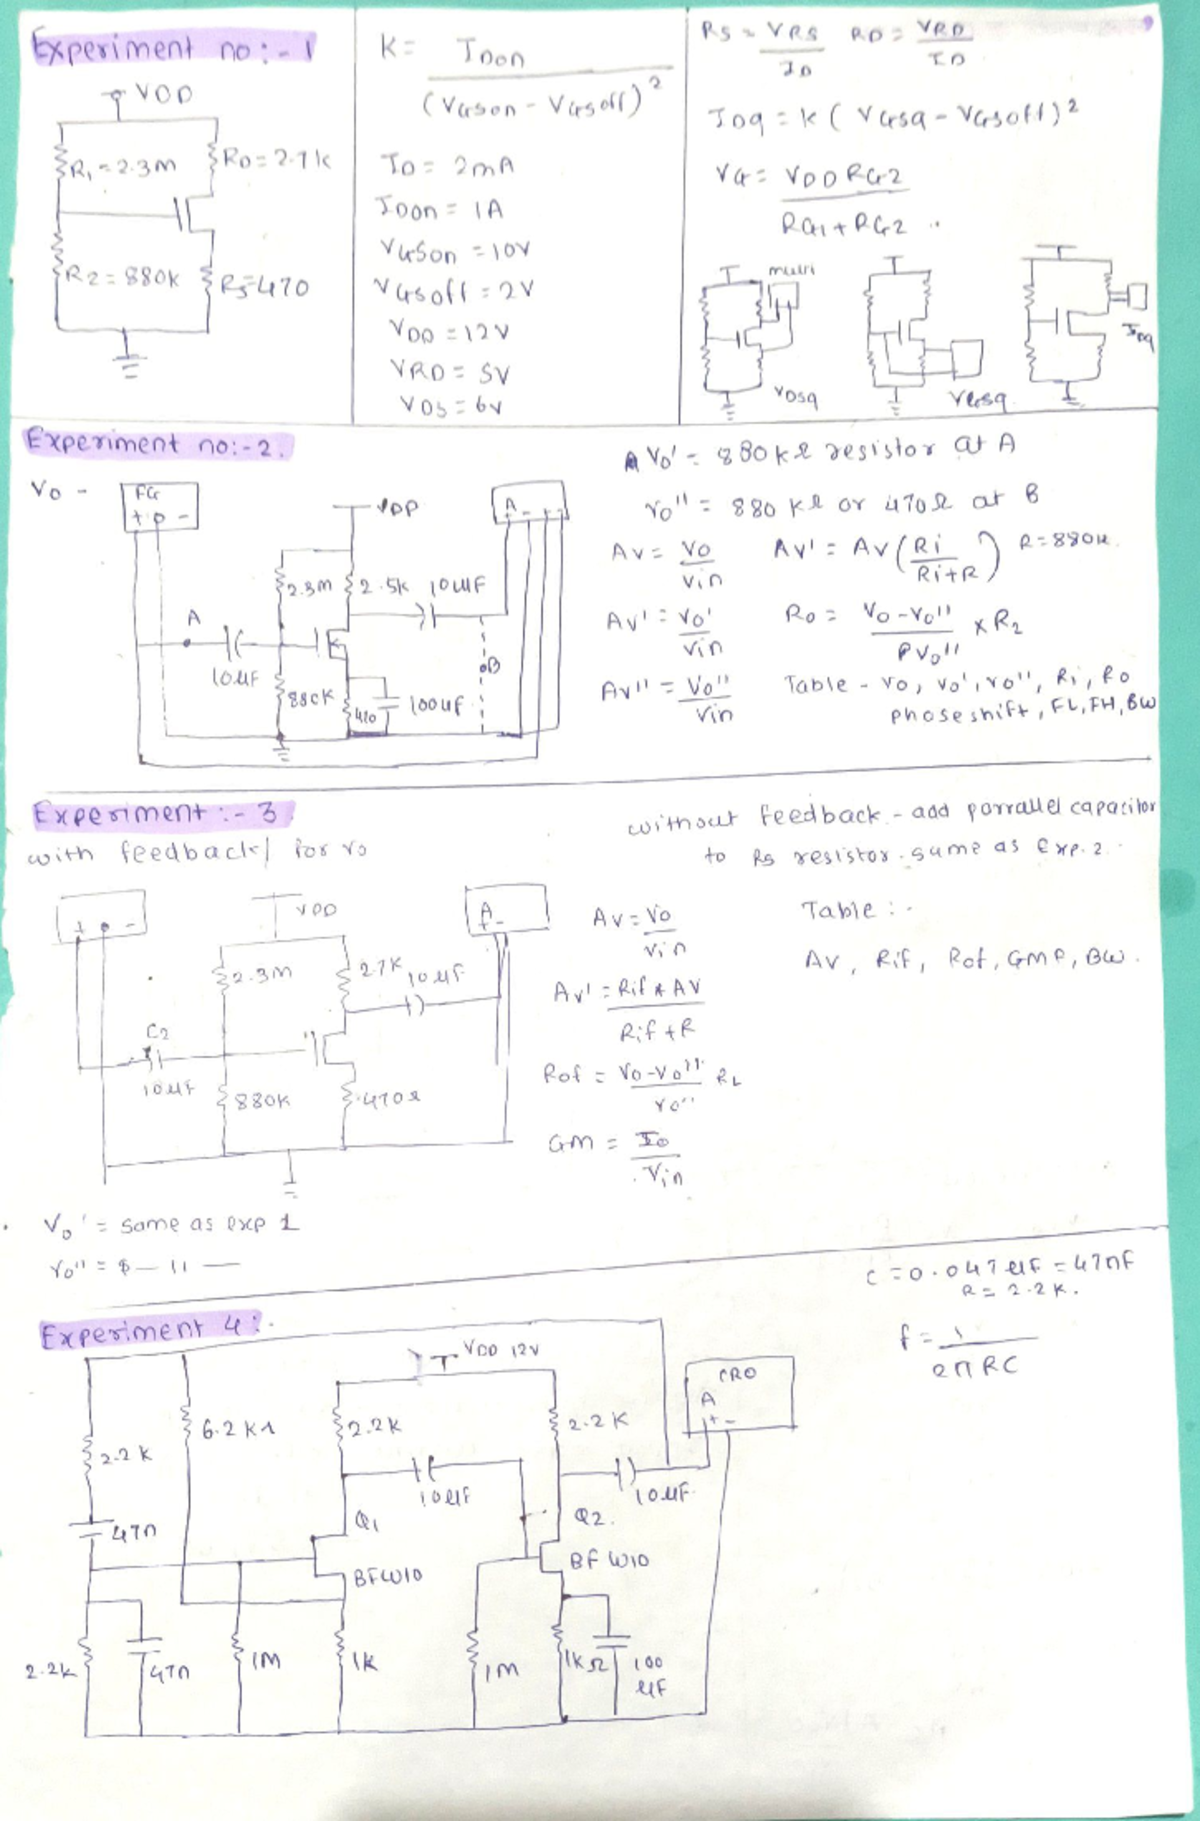 Experiment no:- 1
VDD
R1 = 2.3m
RD = 2.7k
R2 = 880k
RS = 470
K = IDon
(VGSon - VGSoff)2
ID = 2mA
IDon = 1A
VGSon = 10V
VGSoff = 2V
VDD = 12V
VRD = 5V
VDS = 6V
RS = VRS RD = VRD
ID ID
IDq = K ( VGSq - VGSoff)2
VG = VDD RG2
RG1 + RG2
multi
VDSq
VGSq
IDq
Experiment no:-2.
Vo -
FG
+ o -
VDD
A
2.3m
2.5k
10uF
A
10uF
B
880K
470
100uF
Vo' = 880kΩ resistor at A
Vo'' = 880 kΩ or 470Ω at B
Av = Vo Av' = Av ( Ri ) R = 880k
Vin Ri+R
Av' = Vo' Ro = Vo-Vo'' x R2
Vin PVo''
Av'' = Vo'' Table - Vo, Vo', Vo'', Ri, Ro
Vin phaseshift, FL, FH, BW
Experiment :- 3
with feedback / for Vo
without feedback - add parrallel capacitor
to Rs resistor. same as Exp. 2.
VDD
A
+ -
2.3m
2.7K
10uF
C2
10uF
880K
470Ω
Av = Vo
Vin
Av' = Rif * AV
Rif + R
Rof = Vo-Vo'' RL
Vo''
GM = Io
Vin
Table :-
AV, Rif, Rof, GMF, BW.
Vo' = same as exp 1
Vo'' = $ — 11 —
Experiment 4:-
C = 0.047uF = 47nF
R = 2.2K.
f = 1
2πRC
VDD 12V
CRO
A
+ -
6.2K
2.2K
2.2K
2.2K
10uF
10uF
47n
Q1
BFW10
Q2.
BFW10
2.2K
47n
1M
1K
1M
1KΩ
100
uF